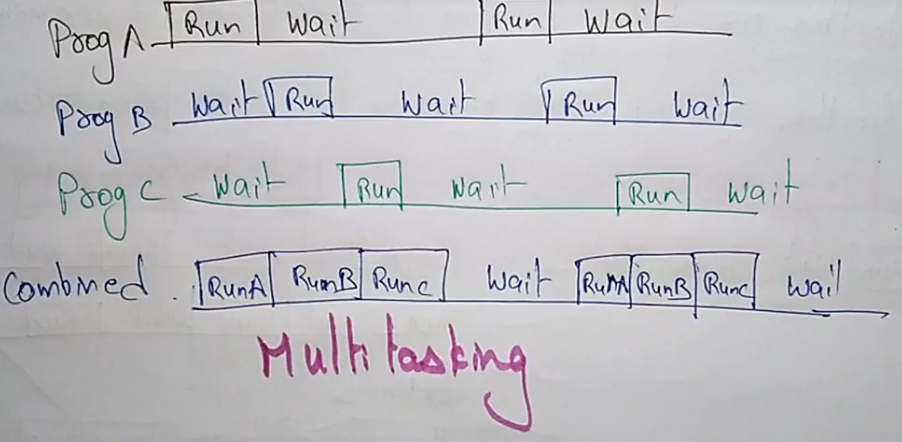 Prog A Run Wait Run Wait
Prog B Wait Run Wait Run Wait
Prog C Wait Run Wait Run Wait
Combined RunA RunB Runc Wait RunA RunB Runc Wait
Multitasking